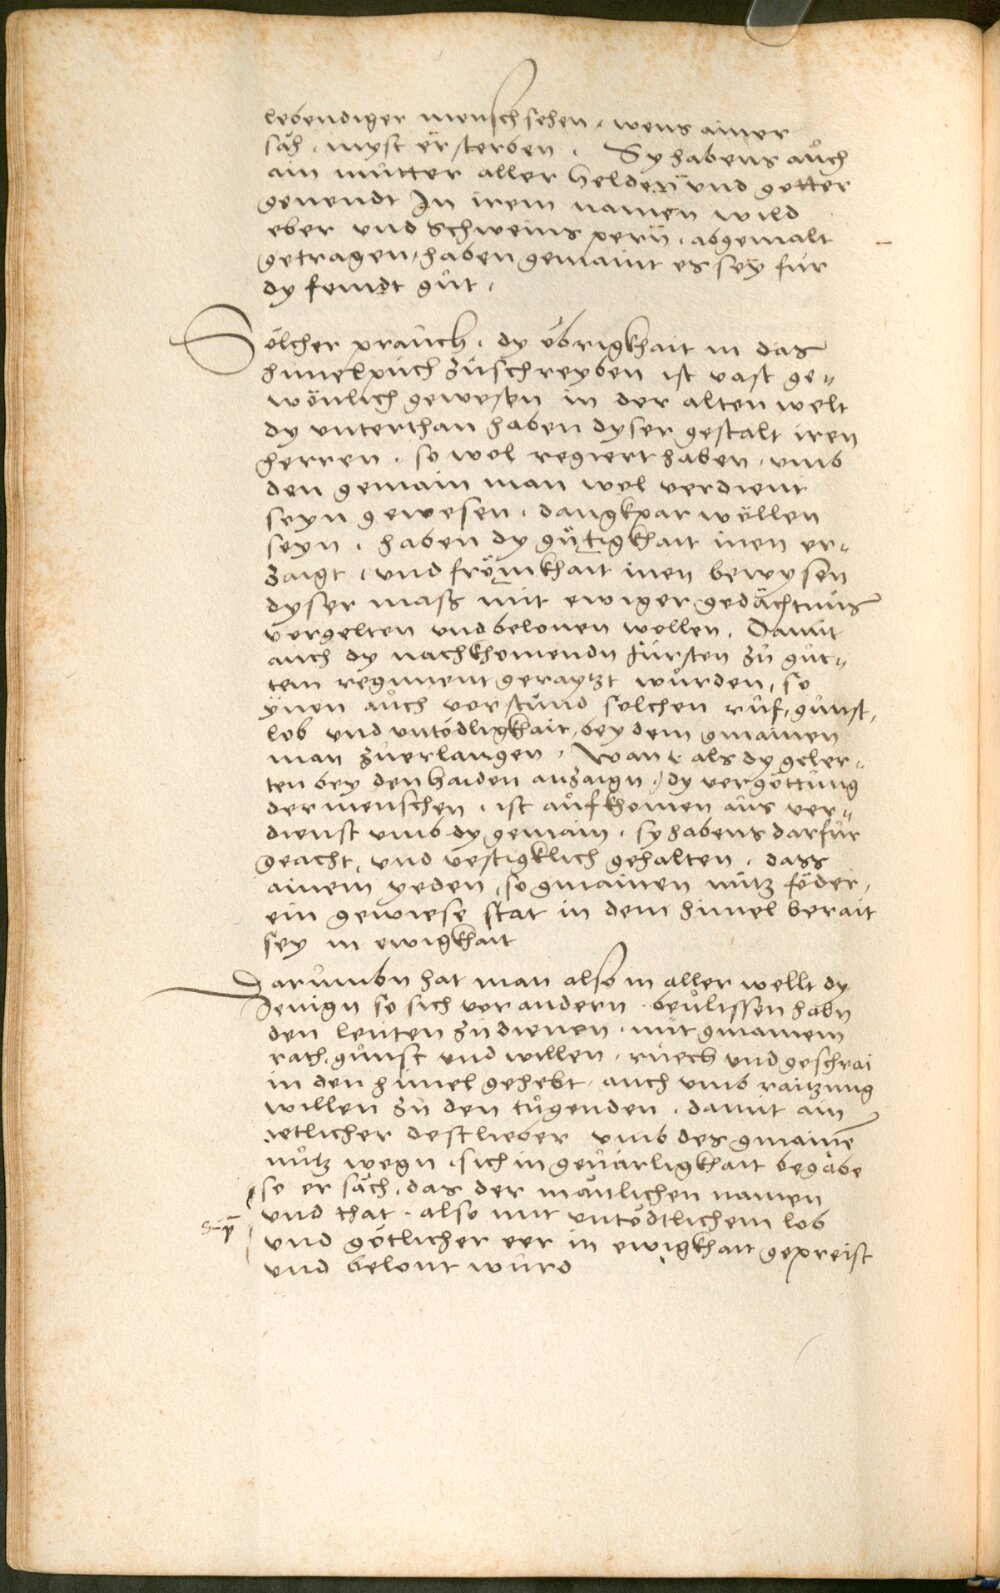 lebendiger mensch sehen, wens ainer
säh, myst er sterben. Sy habens aůch
ain můtter aller helden und getter
genendt In irem namen wild
eber und schweins pern, abgemalt
getragen, haben gemaint es sey für
dy feindt gůt.
Sölcher praůch, dy öbrigkhait in das
himelpůch zůschreyben ist vast ge„
wönlich gewesen in der alten welt
dy unterthan haben dyser gestalt iren
herren, so wol regiert haben, umb
den gemain man wol verdient
seyn gewesen, dangkpar wöllen
seyn, haben dy gůtigkhait inen er„
zaigt, und frömkhait inen bewysen
dyser mass mit ewiger gedächtnůs
vergelten und belonen wellen. Damit
auch dy nachkhomendn fürsten zů gůt„
tem regiment geraytzt wůrden, so
ynen aůch verstůnd solchen růf, gůnst,
lob und untödligkait, bey dem gmainen
man zůerlangen. Want als dy geler„
ten bey den haiden anzaign, dy vergöttůng
der menschen, ist aůfkhomen aůs ver„
dienst umb dy gemain, sy habens darfůr
geacht, und vestigklich gehalten, dass
ainem yeden, so gmainen nůtz föder,
ein gewiese stat in dem himel berait
sey in ewigkhait
Darůmbn hat man also in aller wellt dy
Jenign so sich vor andern, beůlissen habn
den leůten zů dienen, mit gmainem
rath, gůnst und willen, růech und geschrai
in den himel gehebt, auch umb raitzung
willen zů den tůgenden, damit ain
ietlicher dest lieber umb des gmainē
nůtz wegn, sich in geůärligkhait begäbe
so er säch, das der mänlichen namen
und that, also mit untödtlichem lob
und götlicher eer in ewigkhait gepreist
und belont wůrd